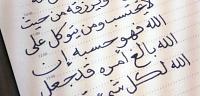 ويرزقه من حيث
لا يحتسب ومن يتوكل على
الله فهو حسبه إن
الله بالغ أمره قد جعل
الله لكل شيء